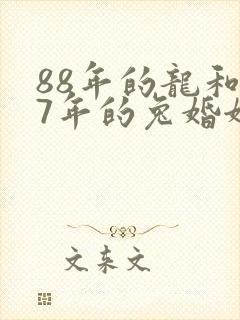 88年的龍和
7年的兔婚
文苿文